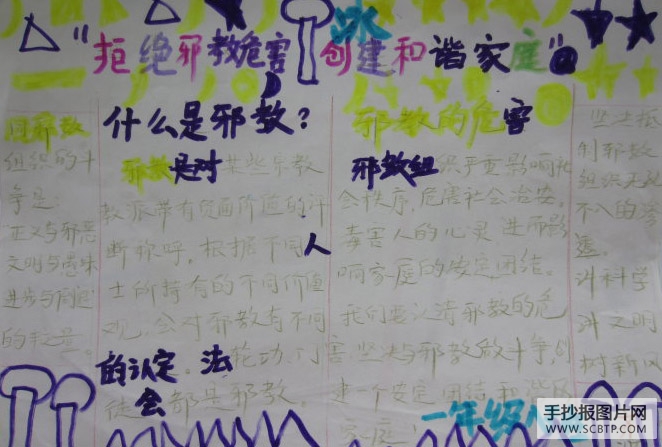 "拒绝邪教危害 创建和谐家庭"
同邪教
组织的斗
争是:
正义与邪恶
文明与愚昧
进步与
的
什么是邪教?
邪教是对某些宗教
教派带有负面价值的
断称呼,根据不同人
士所持有的不同价值
观,会对邪教有不同
的认定。法轮功、门
徒会都是邪教。
邪教的危害
邪教组织严重影响社
会秩序,危害社会治安。
毒害人的心灵 进而影
响家庭的安定团结。
我们要认清邪教的危
害 坚决与邪教做斗争,创
建一个安定 团结 和谐
家庭
坚决抵
制邪教
组织无孔
不入的渗
透。
讲科学
讲文明
树新风
一年级
手抄报图片网
WWW.SCBTP.COM